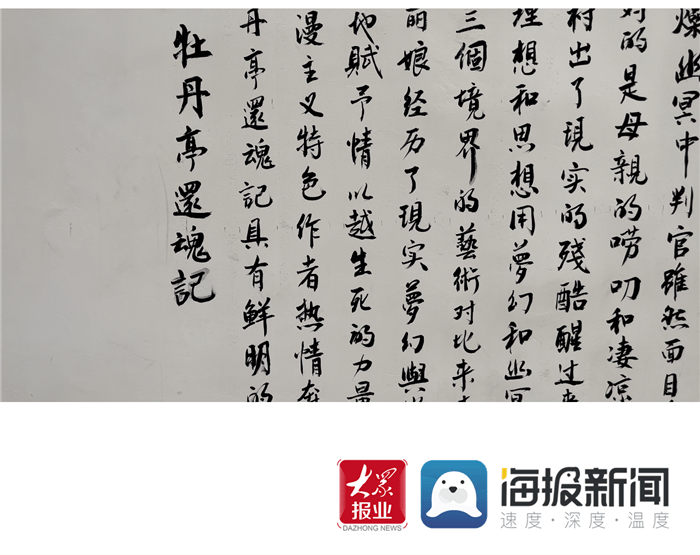 牡丹亭還魂記
丹亭還魂記具有鮮明的
漫主义特色作者熱情奔
地賦予情以越生死的力量
丽娘经历了現实夢幻與
三個境界的藝術对比来
理想和思想用夢幻和幽冥
衬出了現实的殘酷醒过来
对的是母親的唠叨和凄凉
燥幽冥中判官雖然面目
大众
报业
DAZHONG NEWS
海报新闻
速度·深度·温度